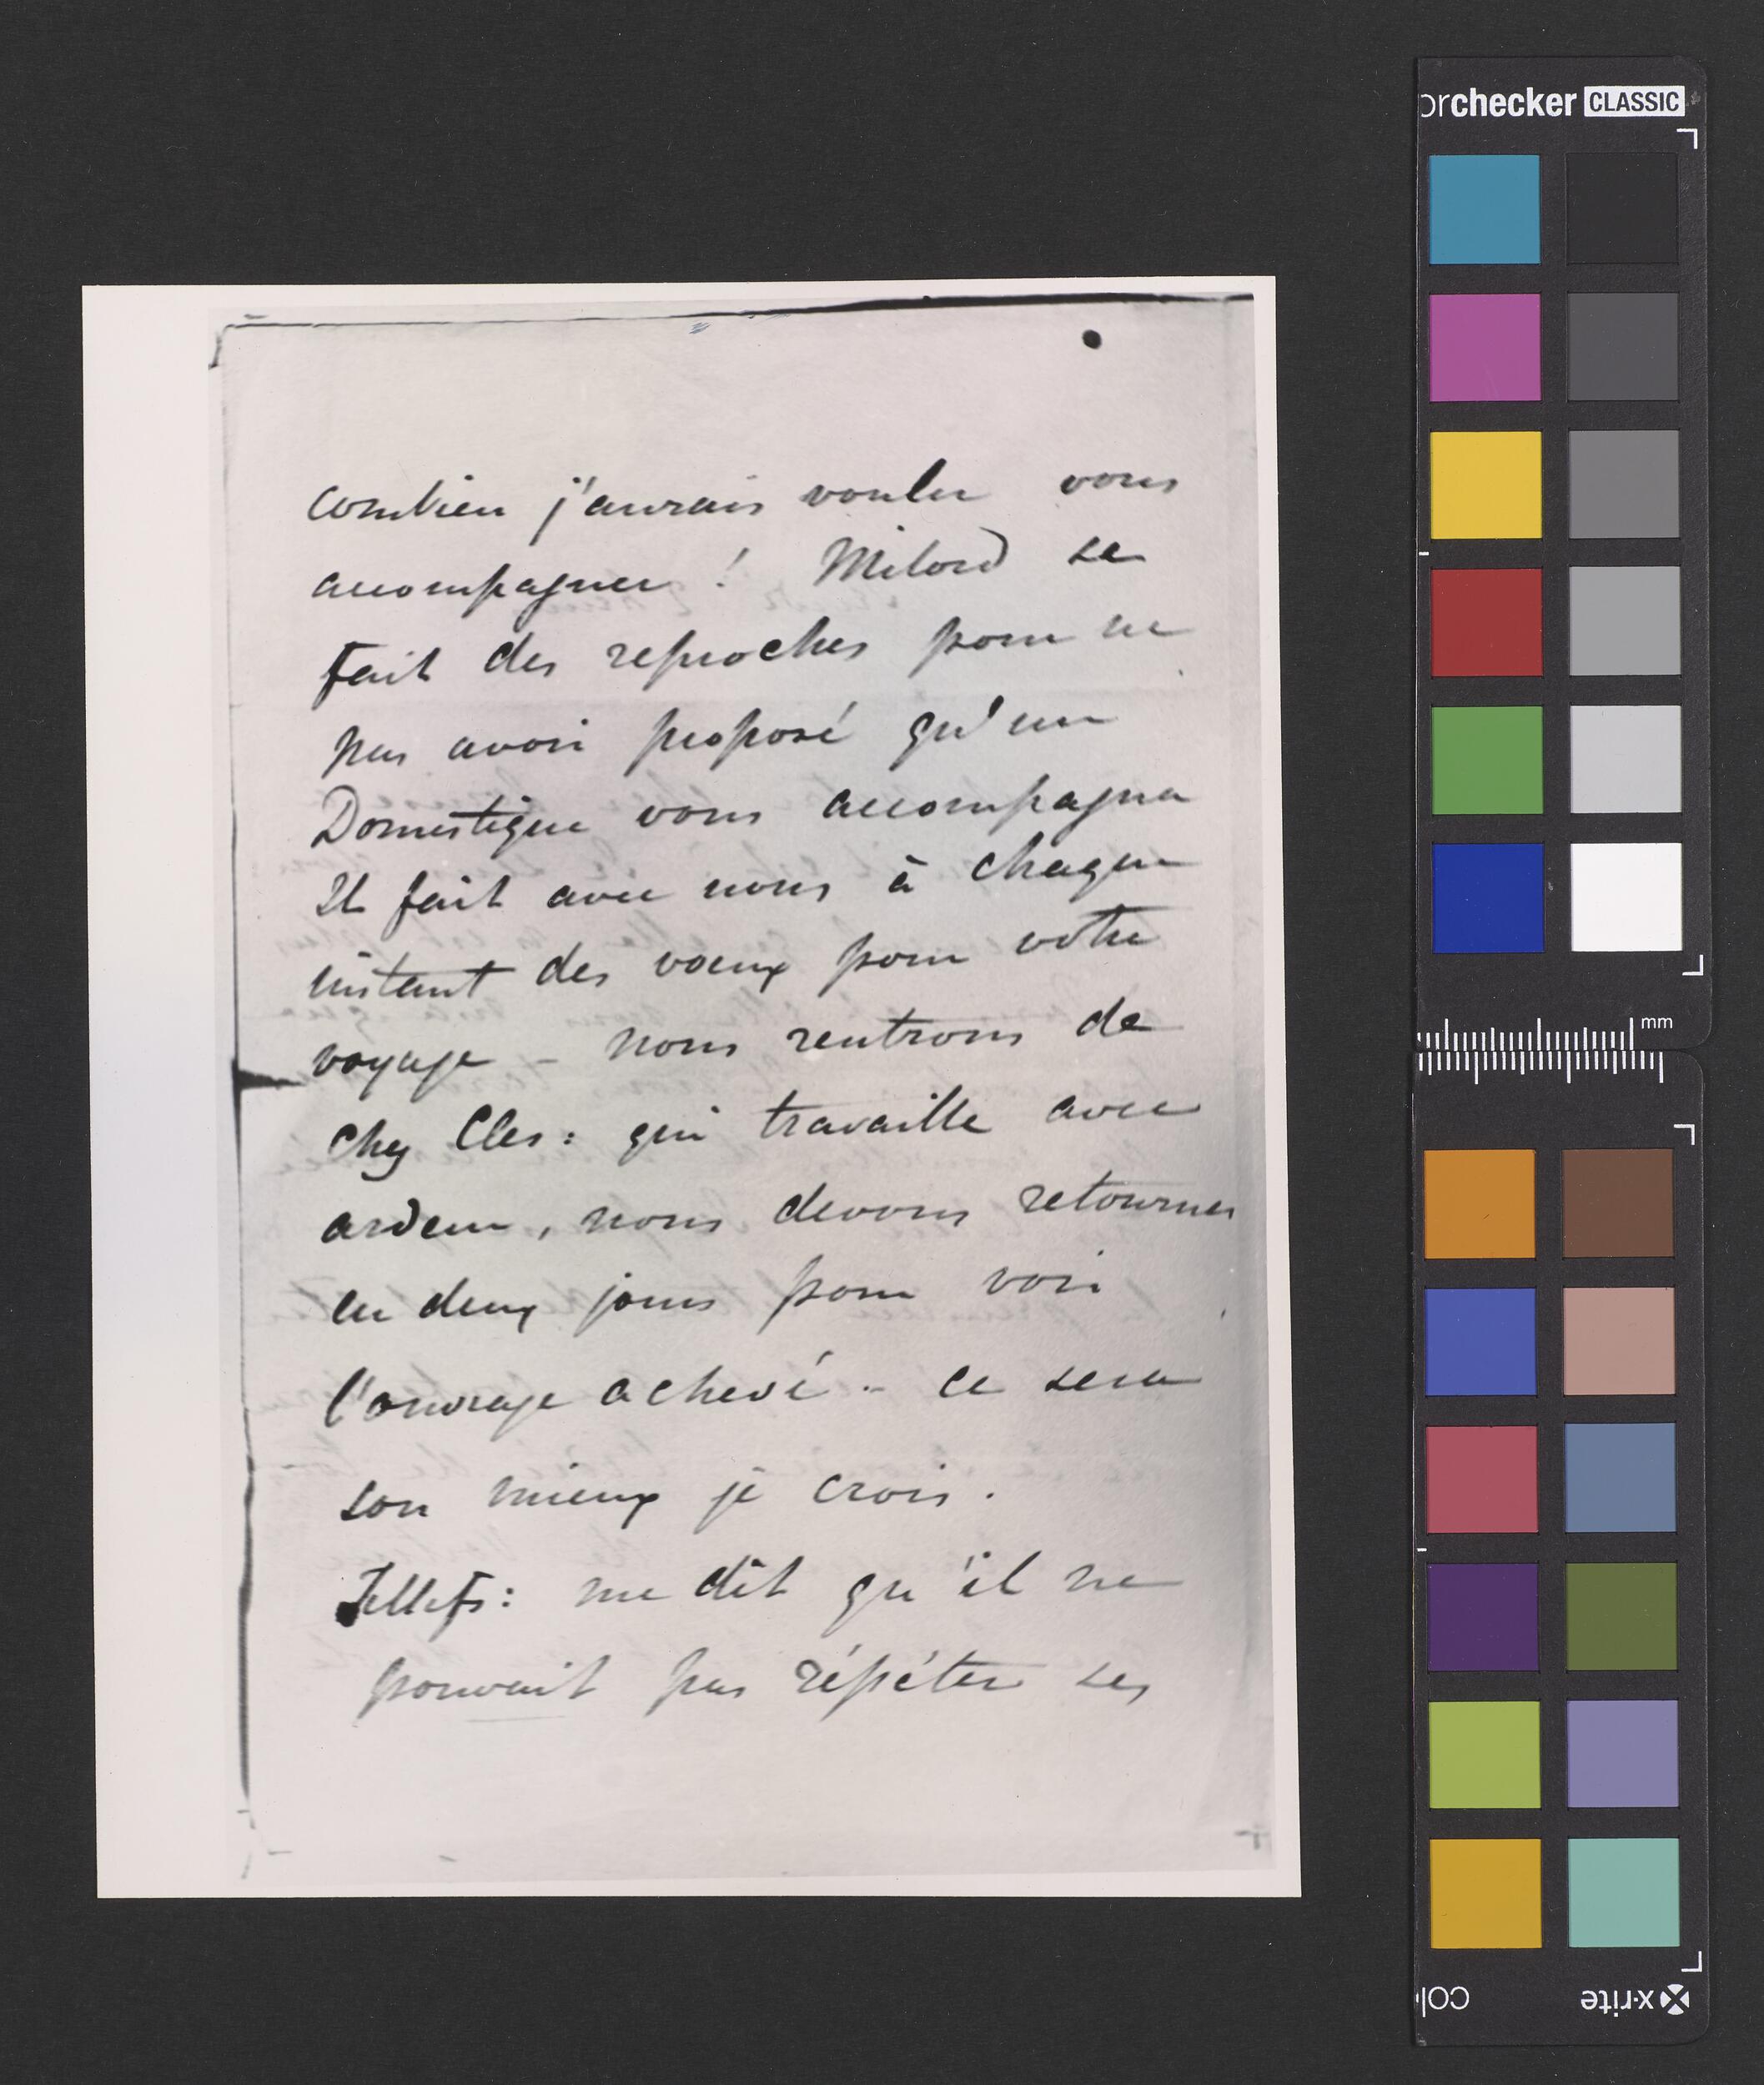 orchecker CLASSIC
combien j'aurais voulu vous
accompagner ! Milord se
fait des reproches pour ne
pas avoir proposé qu'un
Domestique vous accompagna
Il fait avec nous à chaque
instant des voeux pour votre
voyage - nous rentrons de
chez Cles: qui travaille avec
ardeur, nous devons retourner
en deux jours pour voir
l'ouvrage achevé - ce sera
son mieux je crois.
me dit qu'il ne
pouvait pas répéter ses
mm
x-rite
col